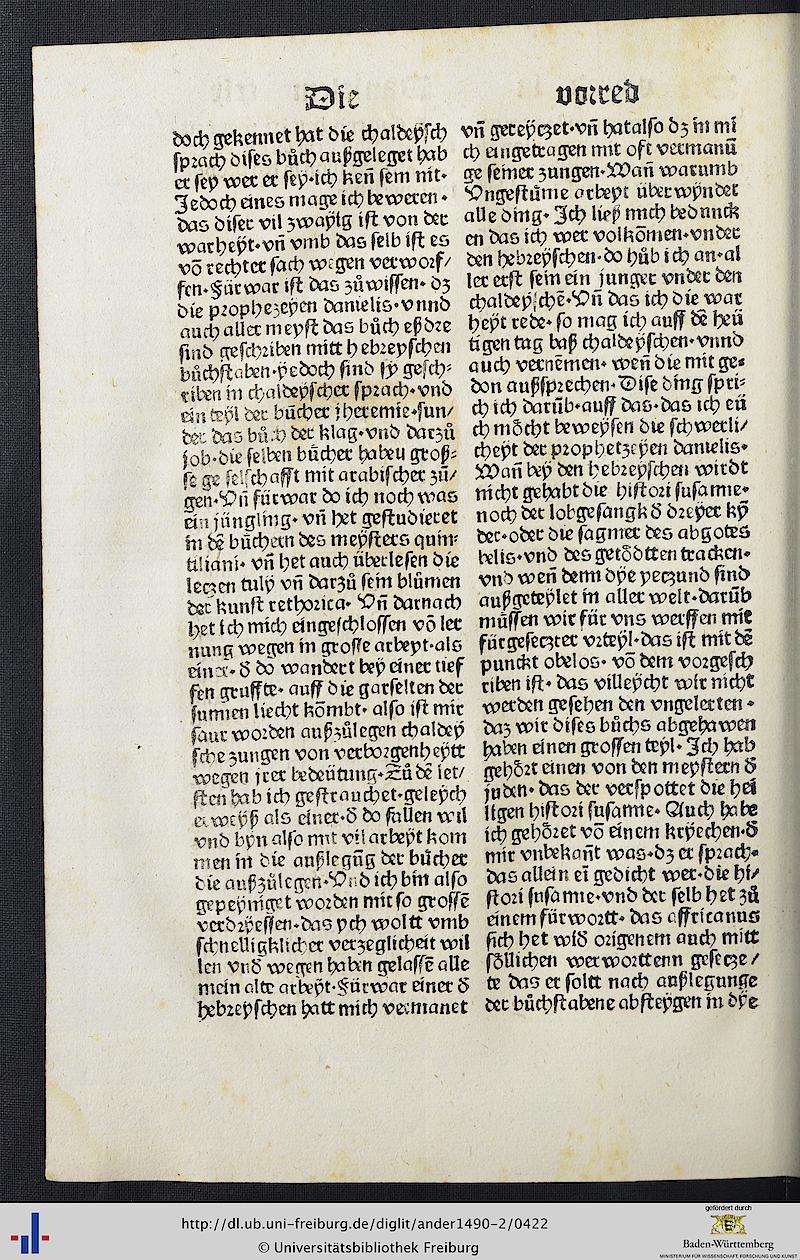 Die vorred
doch gekennet hat die chaldeÿsch
sprach dises bůch außgeleget hab
er sey wer er seÿ·ich keñ sein nit·
Jedoch eines mage ich beweren·
das diser vil zwaÿlg ist von der
warheÿt·vñ vmb das selb ist es
võ rechter sach wegen verworf/
fen·Fürwar ist das zůwissen·dz
die prophezeÿen danielis·vnnd
auch aller meyst das bůch eßdre
sind geschriben mitt hebreyschen
bůchstaben·ÿedoch sind sÿ gesch⸗
riben in chaldeÿscher sprach·vnd
ein teÿl der bůcher jheremie·sun/
der das bůch der klag·vnd darzů
job·die selben bůcher habeu groß⸗
se geselschafft mit arabischer zũ/
gen·Vñ fürwar do ich noch was
ein jüngling·vñ het gestudieret
in dẽ bůchern des meÿsters quin⸗
tiliani·vñ het auch überlesen die
leczen tulÿ vñ darzů sein blůmen
der kunst rethorica·Vñ darnach
het ich mich eingeschlossen võ ler
nung wegen in grosse arbeyt·als
einer·δ do wandert beÿ einer tief
fen gruffte·auff die garselten der
sunnen liecht kõmbt·also ist mir
saur worden außzůlegen chaldeÿ
sche zungen von verborgenheÿtt
wegen jrer bedeütung·Zů dẽ let/
sten hab ich gestrauchet·geleÿch
erweÿß als einer·δ do fallen wil
vnd bÿn also mit vil arbeÿt kom
men in die außlegũg der bůcher
die außzůlegen·Vnd ich bin also
gepeÿniget worden mit so grossẽ
verdrÿessen·das ÿch woltt vmb
schnelligklicher verzeglicheit wil
len vnδ wegen haben gelassẽ alle
mein alte arbeÿt·Fürwar einer δ
hebreÿschen hatt mich vermanet
vñ gereÿczet·vñ hat also dz in mi
ch eingetragen mit oft vermanũ
ge seiner zungen·Wañ warumb
Vngestüme arbeyt überwÿndet
alle ding·Ich ließ mich bedunck
en das ich wer volkõmen·vnder
den hebreÿschen·do hůb ich an·al
ler erst sein ein junger vnder den
chaldeÿschẽ·Vñ das ich die war
heÿt rede·so mag ich auff dẽ heü
tigen tag baß chaldeÿschen·vnnd
auch vernemen·weñ die mit ge⸗
don außsprechen·Dise ding spri⸗
ch ich darũb·auff das·das ich eü
ch mőcht beweÿsen die schwerli/
cheyt der prophetzeÿen danielis·
Wañ beÿ den hebreÿschen wirdt
nicht gehabt die histori susanne·
noch der lobgesangk δ dreÿer kÿ
der·oder die sagmer des abgotes
belis·vnd des getődtten tracken·
vnd weñ denn dÿe yeczund sind
außgeteÿlet in aller welt·darũb
müssen wir für vns werffen mit
fürgeseczter vrteÿl·das ist mit dẽ
punckt obelos·võ dem vorgesch
riben ist·das villeÿcht wir nicht
werden gesehen den vngelerten·
daz wir dises bůchs abgehawen
haben einen grossen teyl·Ich hab
gehőrt einen von den meystern δ
juden·das der verspottet die hei
ligen histori susanne·Auch habe
ich gehőret võ einem krÿechen·δ
mir vnbekañt was·dz er sprach·
das allein eĩ gedicht wer·die hi/
stori susanne·vnd der selb het zů
einem fürwortt·das affricanus
sich het wiδ origenem auch mitt
sőllichen werworttenn gesecze/
te das er soltt nach außlegunge
der bůchstabene absteÿgen in dÿe
http://dl.ub.uni-freiburg.de/diglit/ander1490-2/0422
© Universitätsbibliothek Freiburg
gefördert durch
Baden-Württemberg
MINISTERIUM FÜR WISSENSCHAFT, FORSCHUNG UND KUNST